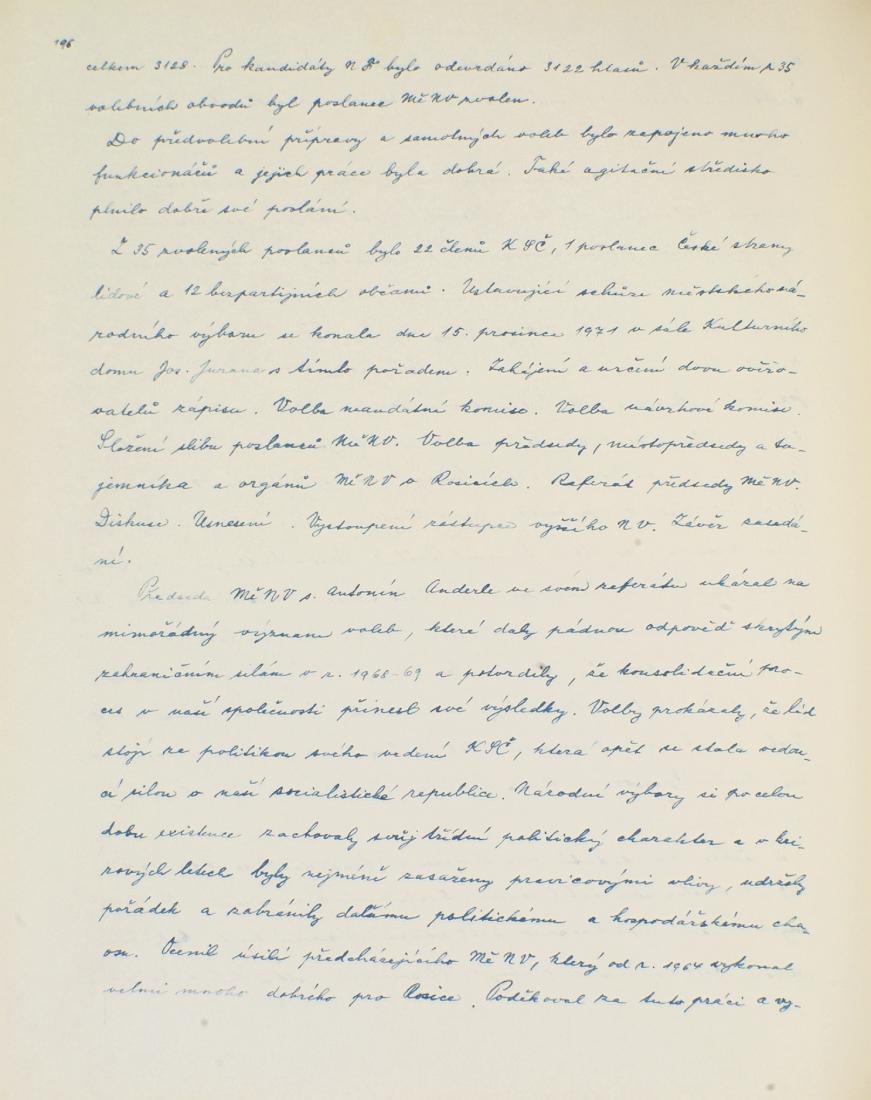 196
celkem 3128. Pro kandidáty NF bylo odevzdáno 3122 hlasů. V každém z 35
volebních obvodů byl poslanec MěNV zvolen.
Do předvolební přípravy a samotných voleb bylo zapojeno mnoho
funkcionářů a jejich práce byla dobrá. Také agitační středisko
plnilo dobře své poslání.
Z 35 zvolených poslanců bylo 22 členů KSČ, 1 poslanec České strany
lidové a 12 bezpartijních občanů. Ustavující schůze městského ná-
rodního výboru se konala dne 15. prosince 1971 v sále Kulturního
domu Jos. Jurana s tímto pořadem. Zahájení a určení dvou ověřo-
vatelů zápisu. Volba mandátní komise. Volba návrhové komise.
Složení slibu poslanců MěNV. Volba předsedy, místopředsedy a ta-
jemníka a orgánů MěNV v Rosicích. Referát předsedy MěNV.
Diskuse. Usnesení. Vystoupení zástupce vyššího NV. Závěr zasedá-
ní.
Předseda MěNV s. Antonín Anderle ve svém referátu ukázal na
mimořádný význam voleb, které daly pádnou odpověď skrytým
zahraničním silám v r. 1968-69 a potvrdily, že konsolidační pro-
ces v naší společnosti přinesl své výsledky. Volby prokázaly, že lid
stojí za politikou svého vedení KSČ, která opět se stala vedou-
cí silou v naší socialistické republice. Národní výbory si po celou
dobu existence zachovaly svůj třídní politický charakter a v kri-
zových letech byly nejméně zasaženy pravicovými vlivy, udržely
pořádek a zabránily dalšímu politickému a hospodářskému cha-
osu. Ocenil úsilí předcházejícího MěNV, který od r. 1964 vykonal
velmi mnoho dobrého pro Rosice. Poděkoval za tuto práci a vy-